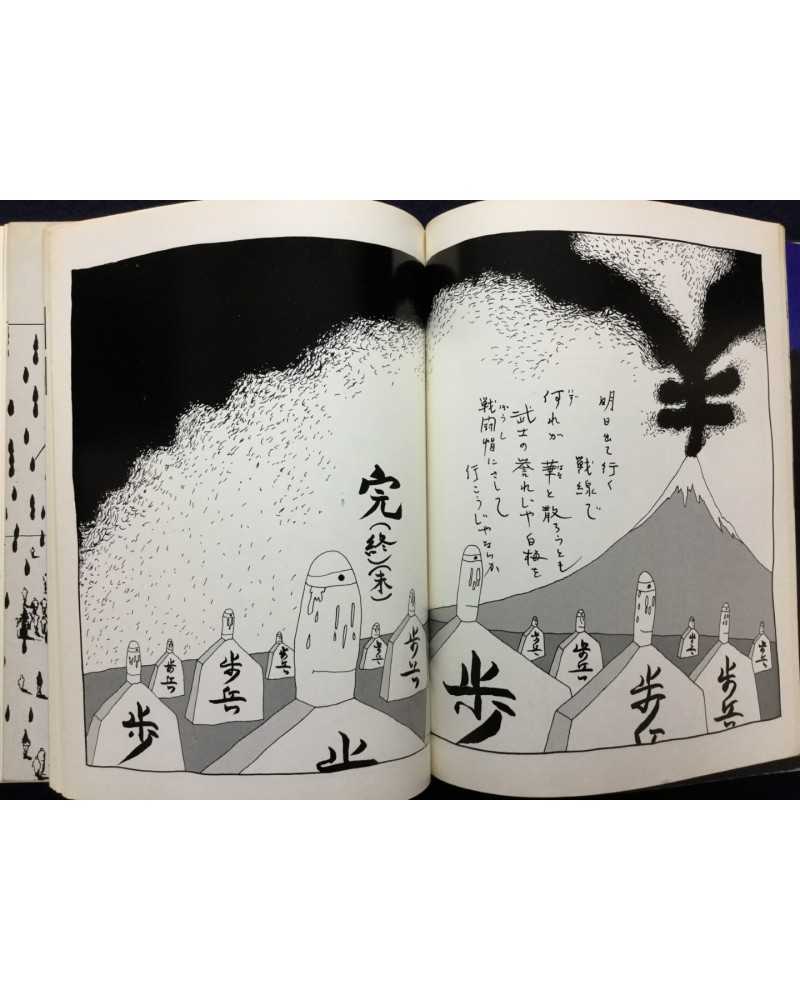 ¥
明日出て行く
戦線で
何れか華と散ろうとも
武士の誉れじゃ白梅を
戦闘帽にさして
行こうじゃないか
完(終)(末)
歩
歩兵
歩兵
歩兵
歩兵
歩兵
歩
歩兵
歩兵
歩兵
歩兵
歩兵
歩兵